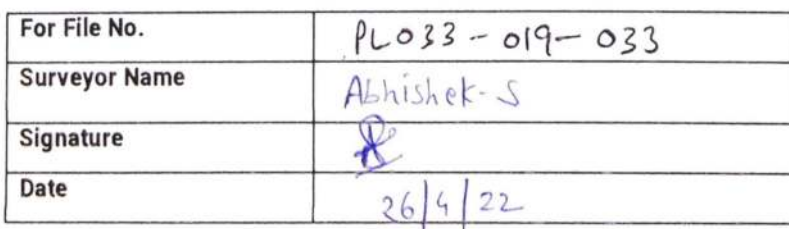 For File No. PL033 - 019 - 033
Surveyor Name Abhishek-S
Signature
Date 26/4/22